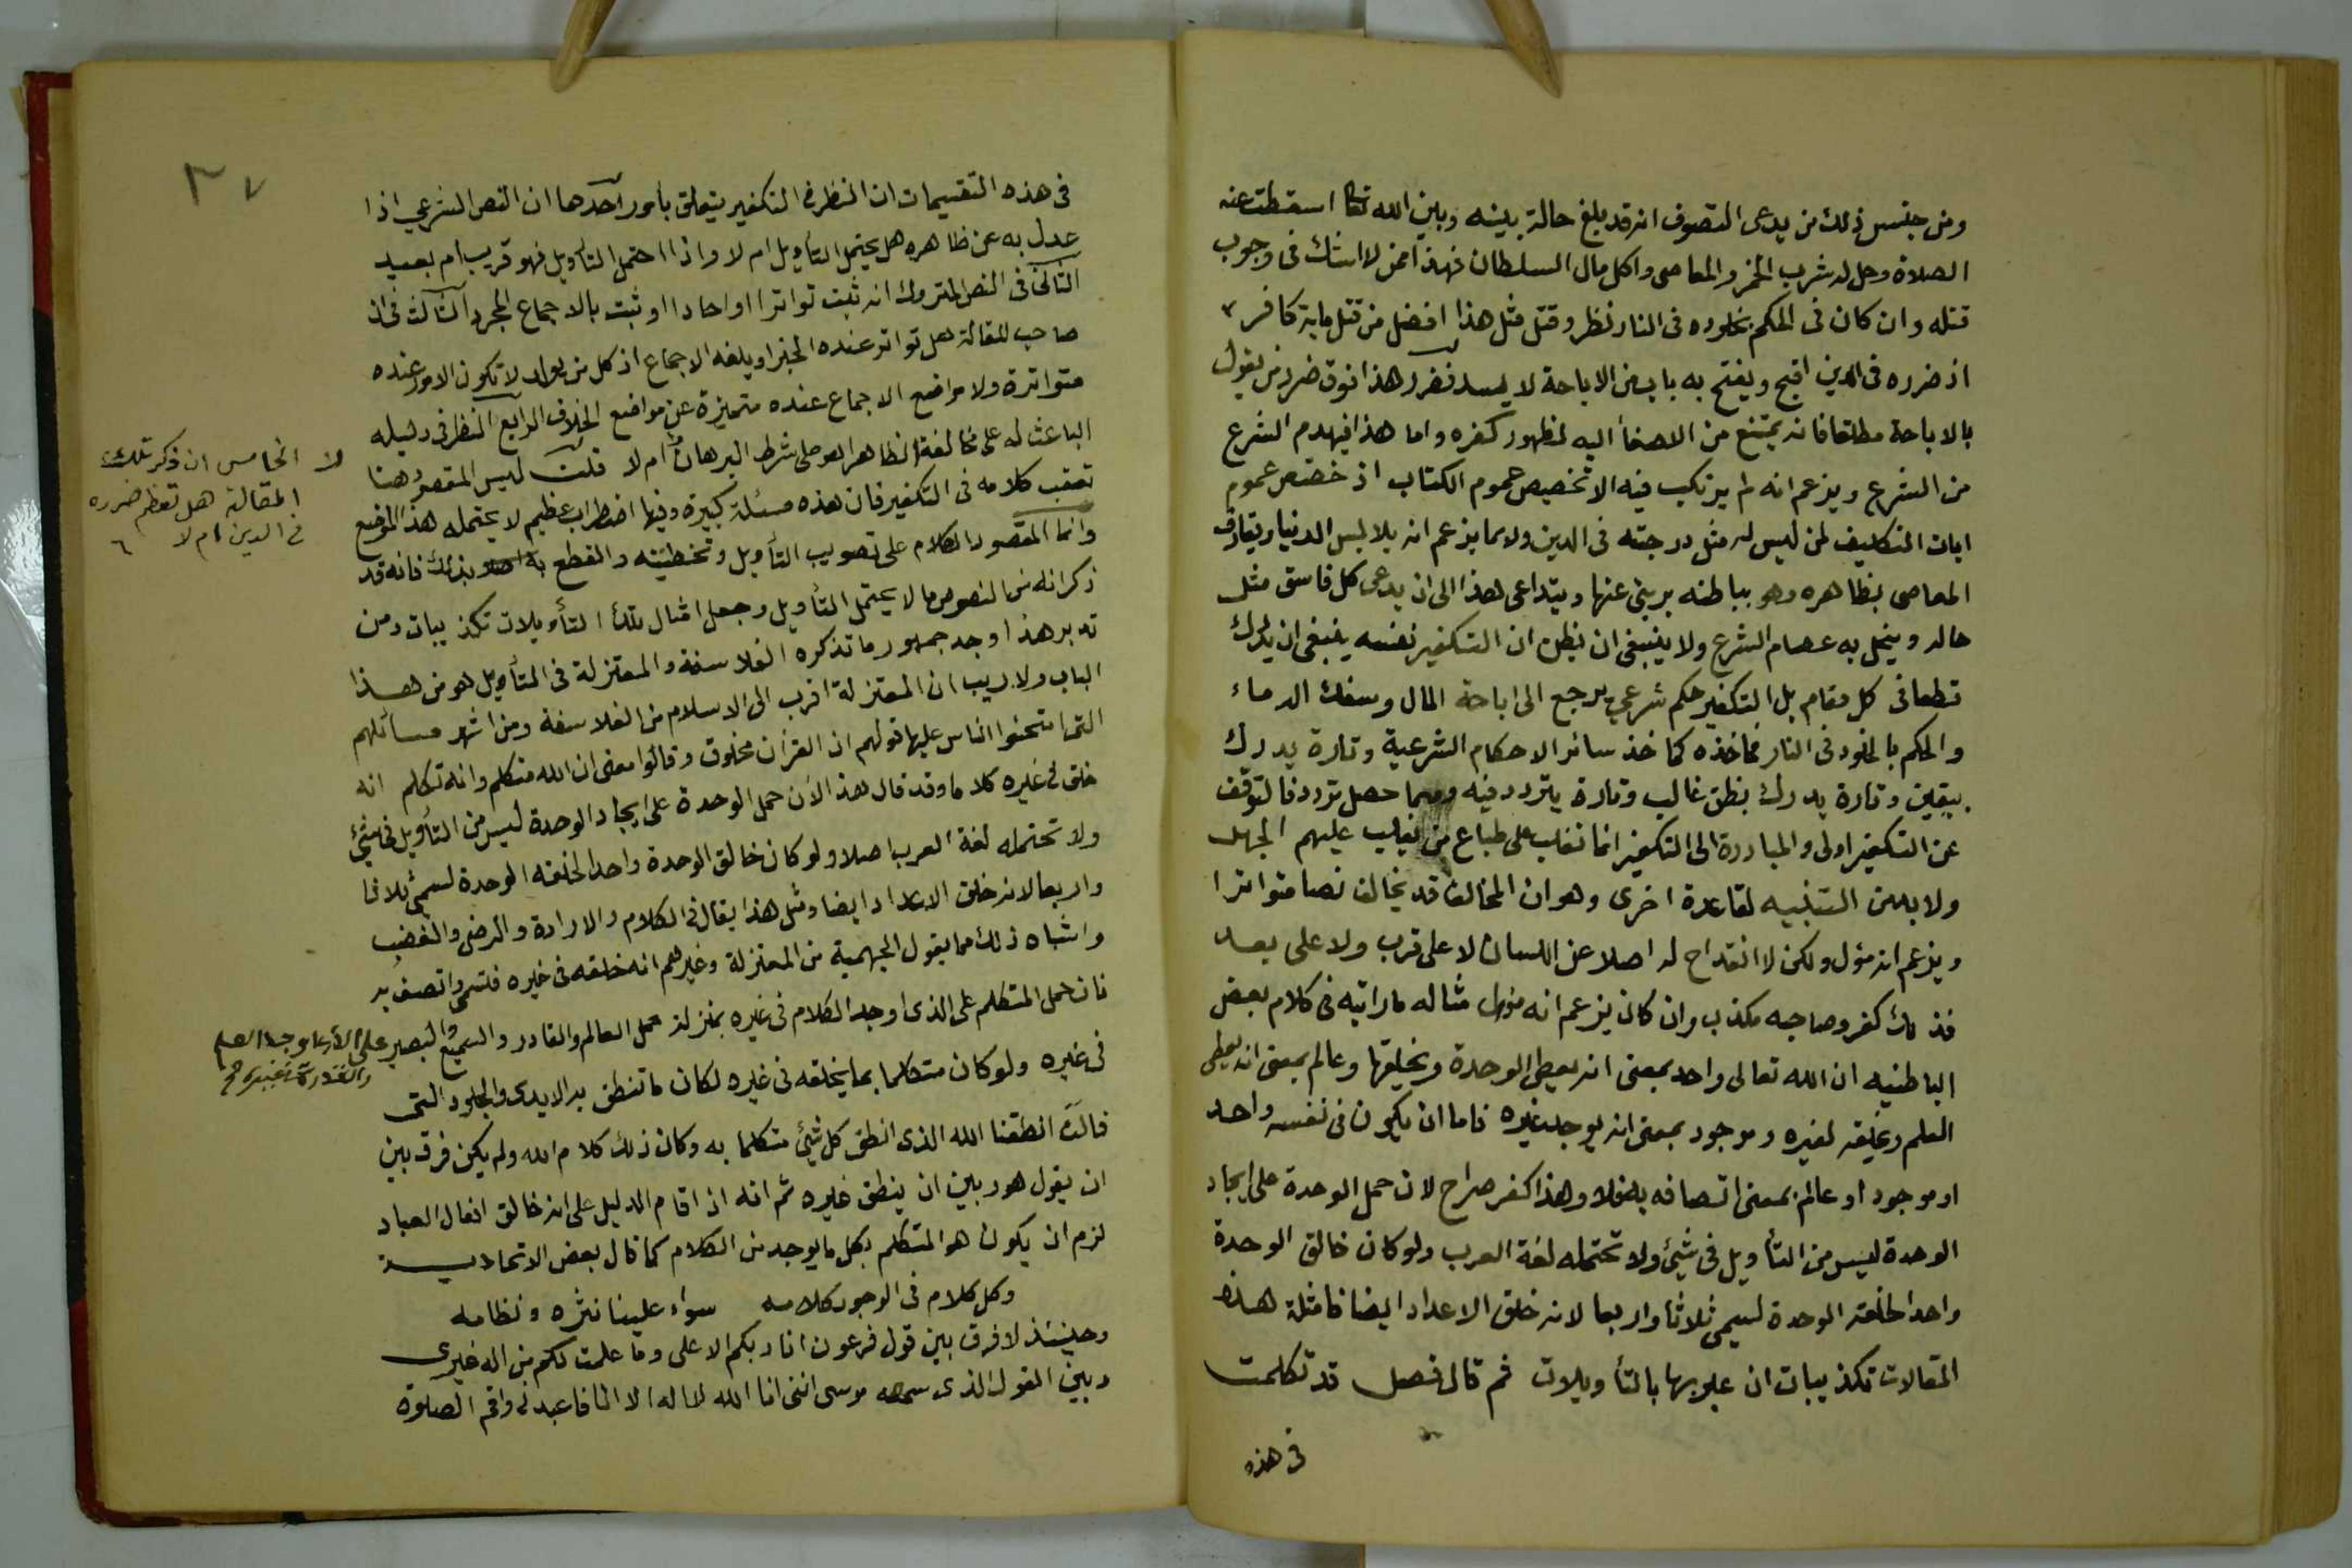 ومن جنس ذلك من يدعى التصوف انه قد بلغ حالة بينه وبين الله تعالى اسقطت عنه
الصلاة وحل له شرب الخمر والمعاصى واكل مال السلطان فهذا ممن لا اشك فى وجوب
قتله وان كان فى الحكم بخلوده فى النار نظر وقتل مثل هذا افضل من قتل ماية كافر
اذ ضرره فى الدين اقبح ويفتح به باب من الاباحة لا يسد فضرر هذا فوق ضرر من يقول
بالاباحة مطلقا فانه يمتنع من الاصغا اليه لظهور كفره واما هذا فيهدم الشرع
من الشرع ويزعم انه لم يرتكب فيه الا تخصيص عموم الكتاب اذ خصص عموم
ايات التكاليف لمن ليس له مثل درجته فى الدين وربما يزعم انه يلابس الدنيا ويقارف
المعاصى بظاهره وهو بباطنه برىء عنها ويتداعى هذا الى ان يدعى كل فاسق مثل
حاله وينحل به عصام الشرع ولا ينبغى ان يظن ان التكفير نفسه ينبغى ان يدرك
قطعا فى كل مقام بل التكفير حكم شرعي يرجع الى اباحة المال وسفك الدماء
والحكم بالخلود فى النار فماخذه كماخذ سائر الاحكام الشرعية وتارة يدرك
بيقين وتارة يدرك بظن غالب وتارة يتردد فيه ومهما حصل تردد فالتوقف
عن التكفير اولى والمبادرة الى التكفير انما تغلب على طباع من يغلب عليهم الجهل
ولا بد من التنبيه لقاعدة اخرى وهو ان المخالف قد يخالف نصا متواترا
ويزعم انه مؤل ولكن لا انقداح له اصلا عن اللسان لا على قرب ولا على بعد
فذلك كفر وصاحبه مكذب وان كان يزعم انه مؤل مثاله ما رايته فى كلام بعض
الباطنيه ان الله تعالى واحد بمعنى انه يعطى الوحدة ويخلقها وعالم بمعنى انه يعطى
العلم ويخلقه لغيره وموجود بمعنى انه يوجد غيره فاما ان يكون فى نفسه واحد
او موجود او عالم بمعنى اتصافه به فلا وهذا كفر صراح لان حمل الوحدة على ايجاد
الوحدة ليس من التأويل فى شيئ ولا تحتمله لغة العرب ولو كان خالق الوحدة
واحدا لخلقه الوحدة لسمى ثلاثا واربعا لانه خلق الاعداد ايضا فامثلة هذه
المقالات تكذيبات ان عبر بها بالتأويلات ثم قال فصل قد تكلمت
فى هذه
٣٧
فى هذه التقسيمات ان النظر فى التكفير يتعلق بأمور احدها ان النص الشرعي اذا
عدل به عن ظاهره هل يحتمل التأويل ام لا واذا احتمل التأويل فهو قريب ام بعيد
الثانى فى النص المتروك انه ثبت تواترا او احادا او ثبت بالاجماع المجرد الثالث فى ان
صاحب المقالة هل تواتر عنده الخبر او بلغه الاجماع اذ كل من يولد لا تكون الامور عنده
متواترة ولا مواضع الاجماع عنده متميزة عن مواضع الخلاف الرابع النظر فى دليله
الباعث له على مخالفة الظاهر اهو على شرط البرهان ام لا قلت ليس المقصود هنا
لا الخامس ان ذكر تلك
المقالة هل تعظم ضرره
فى الدين ام لا
تعقب كلامه فى التكفير فان هذه مسئلة كبيرة وفيها اضطراب عظيم لا يحتمله هذا الموضع
وانما المقصود الكلام على تصويب التأويل وتخطيئته والقطع بذلك فانه قد
ذكر انه من النصوص ما لا يحتمل التأويل وجعل امثال تلك التأويلات تكذيبات ومن
تدبر هذا وجد جمهور ما تذكره الفلاسفة والمعتزلة فى التأويل هو من هذا
الباب ولا ريب ان المعتزلة اقرب الى الاسلام من الفلاسفة ومن اشهر مسائلهم
التى امتحنوا الناس عليها قولهم ان القرأن مخلوق وقالوا معنى ان الله متكلم وانه تكلم انه
خلق فى غيره كلاما وقد قال هذا الأن حمل الوحدة على ايجاد الوحدة ليس من التأويل فى شيئ
ولا تحتمله لغة العرب اصلا ولو كان خالق الوحدة واحدا لخلقه الوحدة لسمى ثلاثا
واربعا لانه خلق الاعداد ايضا ومثل هذا يقال فى الكلام والارادة والرضى والغضب
واشباه ذلك مما يقول الجهمية من المعتزلة وغيرهم انه خلقه فى غيره فتسمى واتصف به
فان حمل المتكلم على الذى اوجد الكلام فى غيره بمنزلة حمل العالم والقادر والسميع والبصير على الذى اوجد العلم
والقدرة فى غيره صح
فى غيره ولو كان متكلما بما يخلقه فى غيره لكان ما تنطق به الايدى والجلود التى
قالت انطقنا الله الذى انطق كل شيئ متكلما به وكان ذلك كلام الله ولم يكن فرق بين
ان يقول هو وبين ان ينطق غيره ثم انه اذ اقام الدليل على انه خالق افعال العباد
لزم ان يكون هو المتكلم بكل ما يوجد من الكلام كما قال بعض الاتحادية
وكل كلام فى الوجود كلامه سواء علينا نثره ونظامه
وحينئذ لا فرق بين قول فرعون انا ربكم الاعلى وما علمت لكم من اله غيرى
وبين القول الذى سمعه موسى اننى انا الله لا اله الا انا فاعبدنى واقم الصلوة